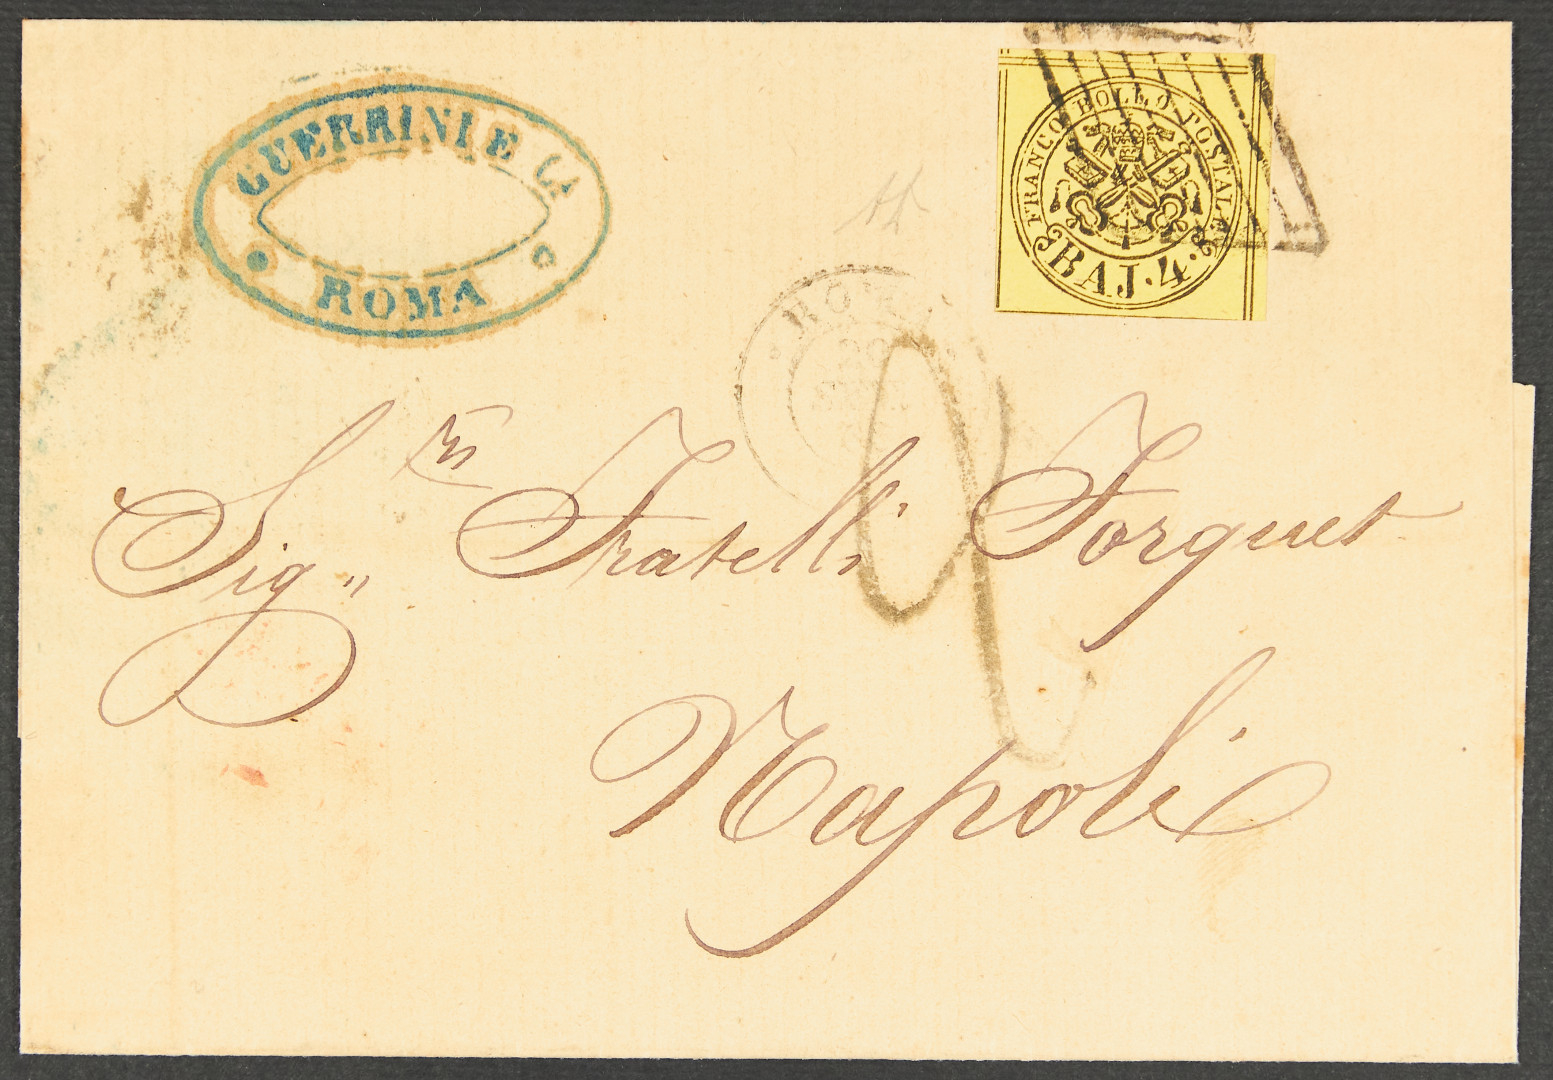 GUERRINI E Ca
ROMA
FRANCO BOLLO POSTALE
BAJ. 4.
ROMA
Sig.ri Fratelli Forquet
Napoli